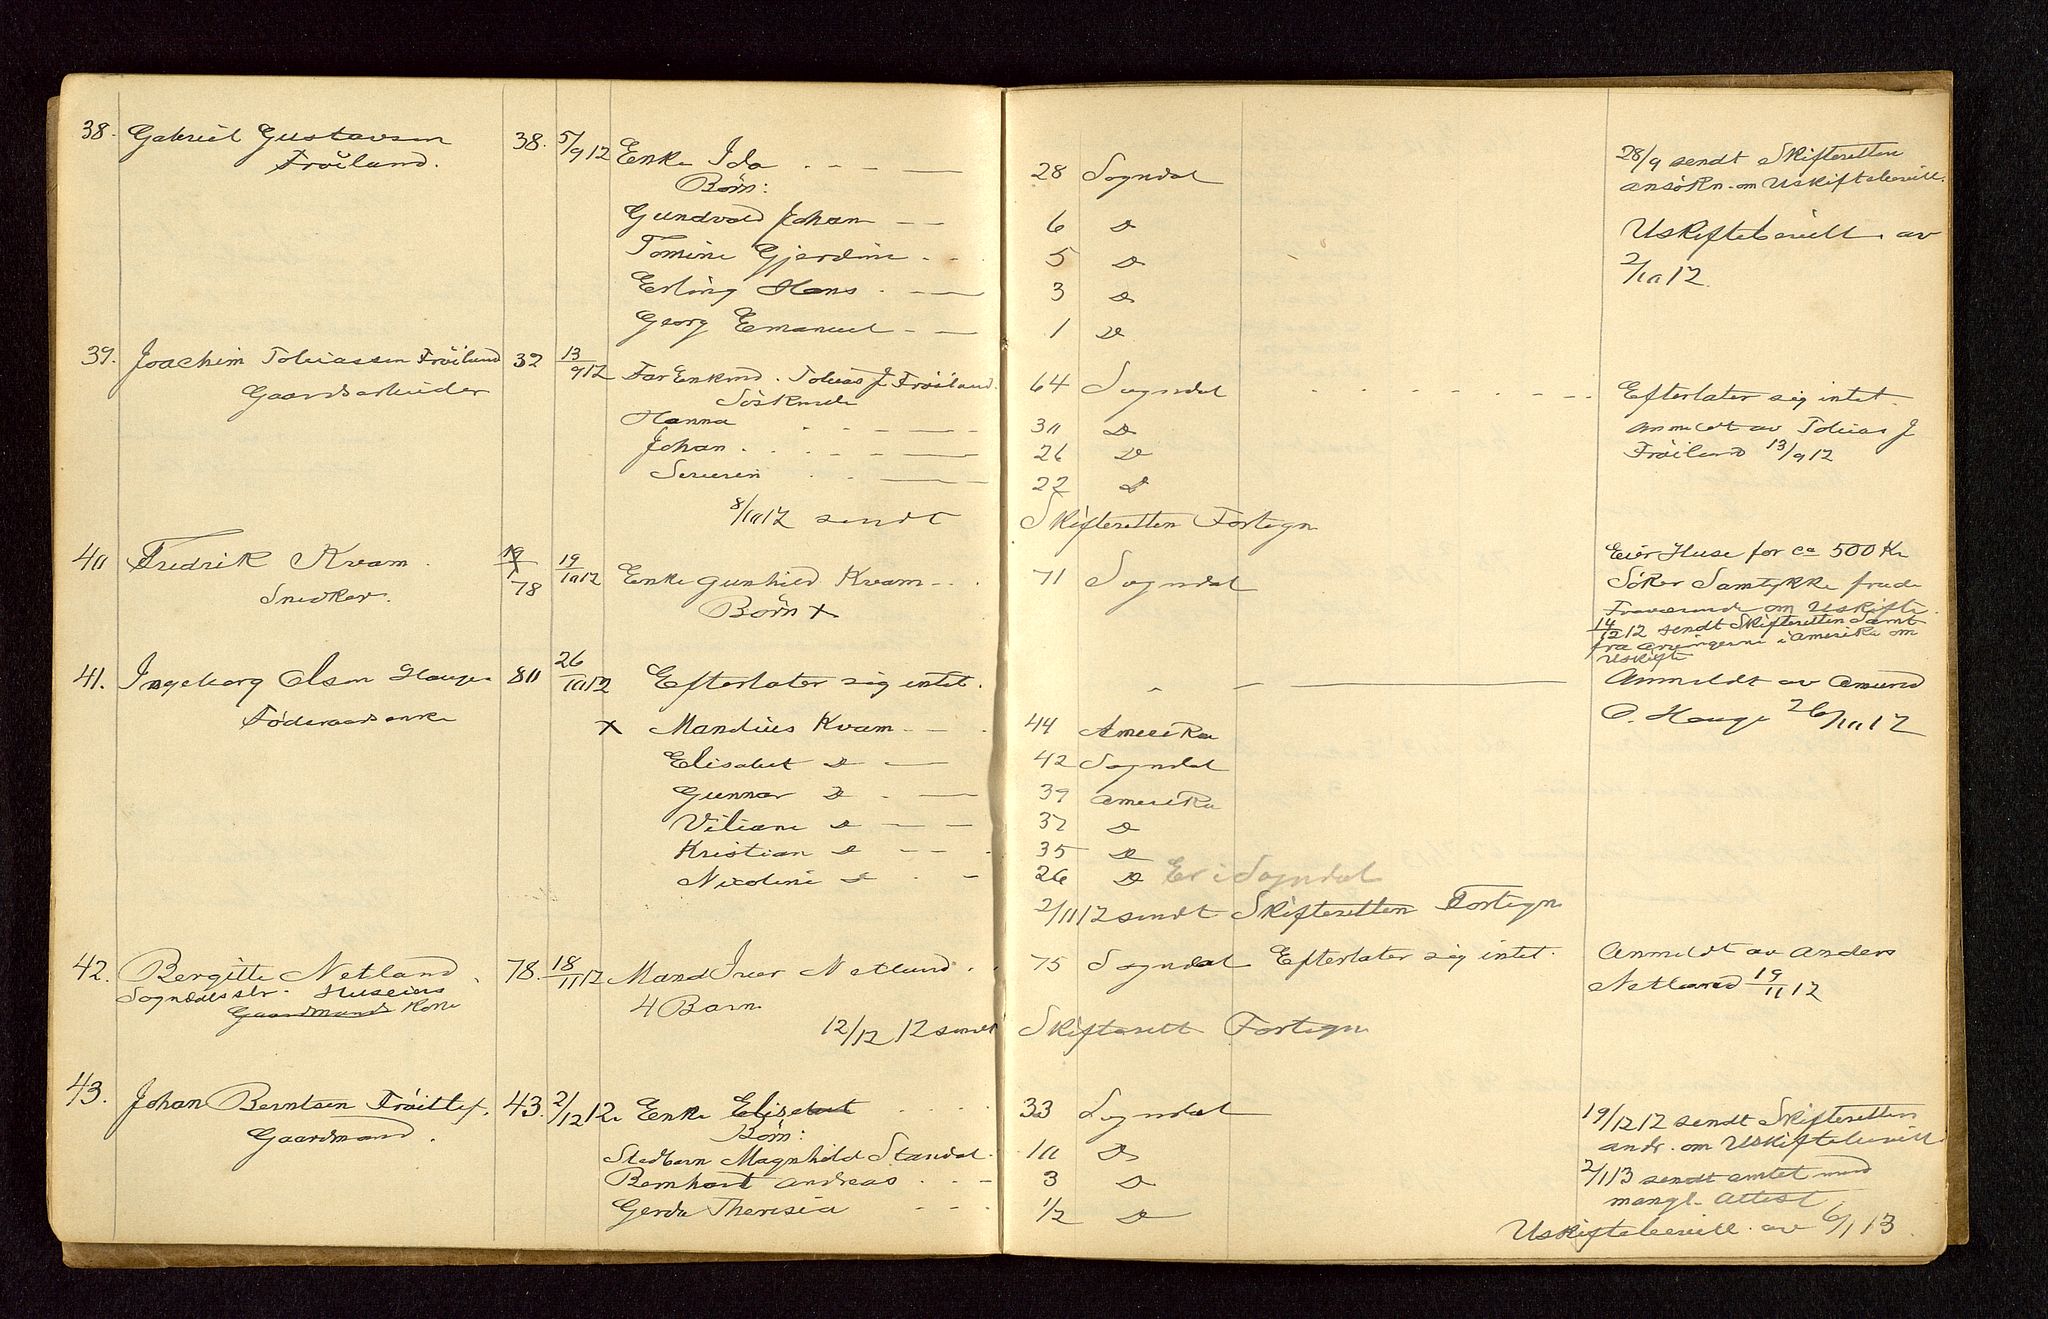 38. Gabriel Gustavsen 38. 5/9 12 Enke Ida 28 Sogndal 28/9 sendt Skifteretten
Frøiland. Børn: ansøkn. om Uskiftebevill.
Gundvald Johan 6 D Uskiftebevill. av
Tomine Gjerdine 5 D 2/10 12.
Erling Hans 3 D
Georg Emanuel 1 D
39. Joachim Tobiassen Frøiland 32 13/9 12 Far Enkmd. Tobias J Frøiland. 64 Sogndal Efterlater sig intet.
Gaardsarbeider Søskende
Hanna 30 D anmeldt av Tobias J
Johan 26 D Frøiland 13/9 12
Severin 22 D
8/10 12 sendt Skifteretten Fortegn
40 Fredrik Kvam. 78 19/10 12 Enke Gunhild Kvam 71 Sogndal Eier Huse for ca 500 Kr
Snedker. Børn x Søker Samtykke fra de
Fraværende om Uskifte.
14/12 12 sendt Skifteretten Samt
fra arvingerne i amerika om
Uskifte
41. Ingeborg Olsen Hauge 80 26/10 12 Efterlater sig intet. Anmeldt av Amund
Føderaadsenke O. Hauge 26/10 12
x Mandius Kvam 44 Amerika
Elisabet D 42 Sogndal
Gunnar D 39 Amerika
Viliam D 37 D
Kristian D 35 D
Nicoline D 26 D Er i Sogndal
2/11 12 sendt Skifteretten Fortegn
42. Bergitte Netland 78. 18/11 12 Mand Iver Netland 75 Sogndal Efterlater sig intet. Anmeldt av Anders
Sogndalsstr. Huseiers 4 Barn Netland 19/11 12
Gaardmands Kone
12/12 12 sendt Skifterett Fortegn
43. Johan Berntsen 43. 2/12 12. Enke Elisabet 33 Sogndal 19/12 12 sendt Skifteretten
Gaardmand. Børn: andr. om Uskiftebevill
Stedbarn Magnhild Standal 10 D 2/1 13 sendt amtet med
Bernhart Andreas 3 D mangl. Attest
Gerda Theresia 1/2 D Uskiftebevill. av 6/1 13.